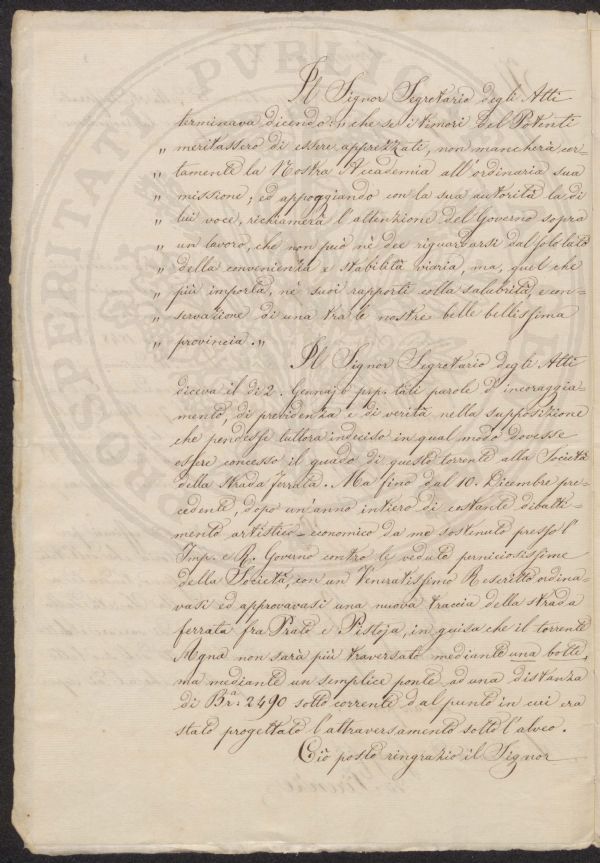 Il Signor Segretario degli Atti
terminava dicendo: „ che se i timori del Potenti
„ meritassero di essere apprezzati, non mancherà cer-
„ tamente la Nostra Accademia all'ordinaria sua
„ missione; ed appoggiando con la sua autorità la di
„ lui voce, richiamerà l'attenzione del Governo sopra
„ un lavoro, che non può nè dee riguardarsi dal solo lato
„ della convenienza e stabilità viaria, ma, quel che
„ più importa, nè suoi rapporti colla salubrità, e con-
„ servazione di una tra le nostre belle bellissima
„ provincia. „
Il Signor Segretario degli Atti
diceva il dì 2. Gennajo p.p. tali parole d'incoraggia-
mento, di previdenza e di verità nella supposizione
che pendesse tuttora indeciso in qual modo dovesse
essere concesso il guado di questo torrente alla Società
della strada ferrata. Ma fino dal 10. Dicembre pre-
cedente, dopo un'anno intiero di costante dibatti-
mento artistico-economico da me sostenuto presso l'
Imp. e R. Governo contro le vedute perniciosissime
della Società, con un Veneratissimo Rescritto ordina-
vasi ed approvavasi una nuova traccia della strada
ferrata fra Prato e Pistoja, in guisa che il torrente
Agna non sarà più traversato mediante una botte,
ma mediante un semplice ponte ad una distanza
di Br.ª 2490 sotto corrente dal punto in cui era
stato progettato l'attraversamento sotto l'alveo.
Ciò posto ringrazio il Signor
PROSPERITATI PUBLICAE